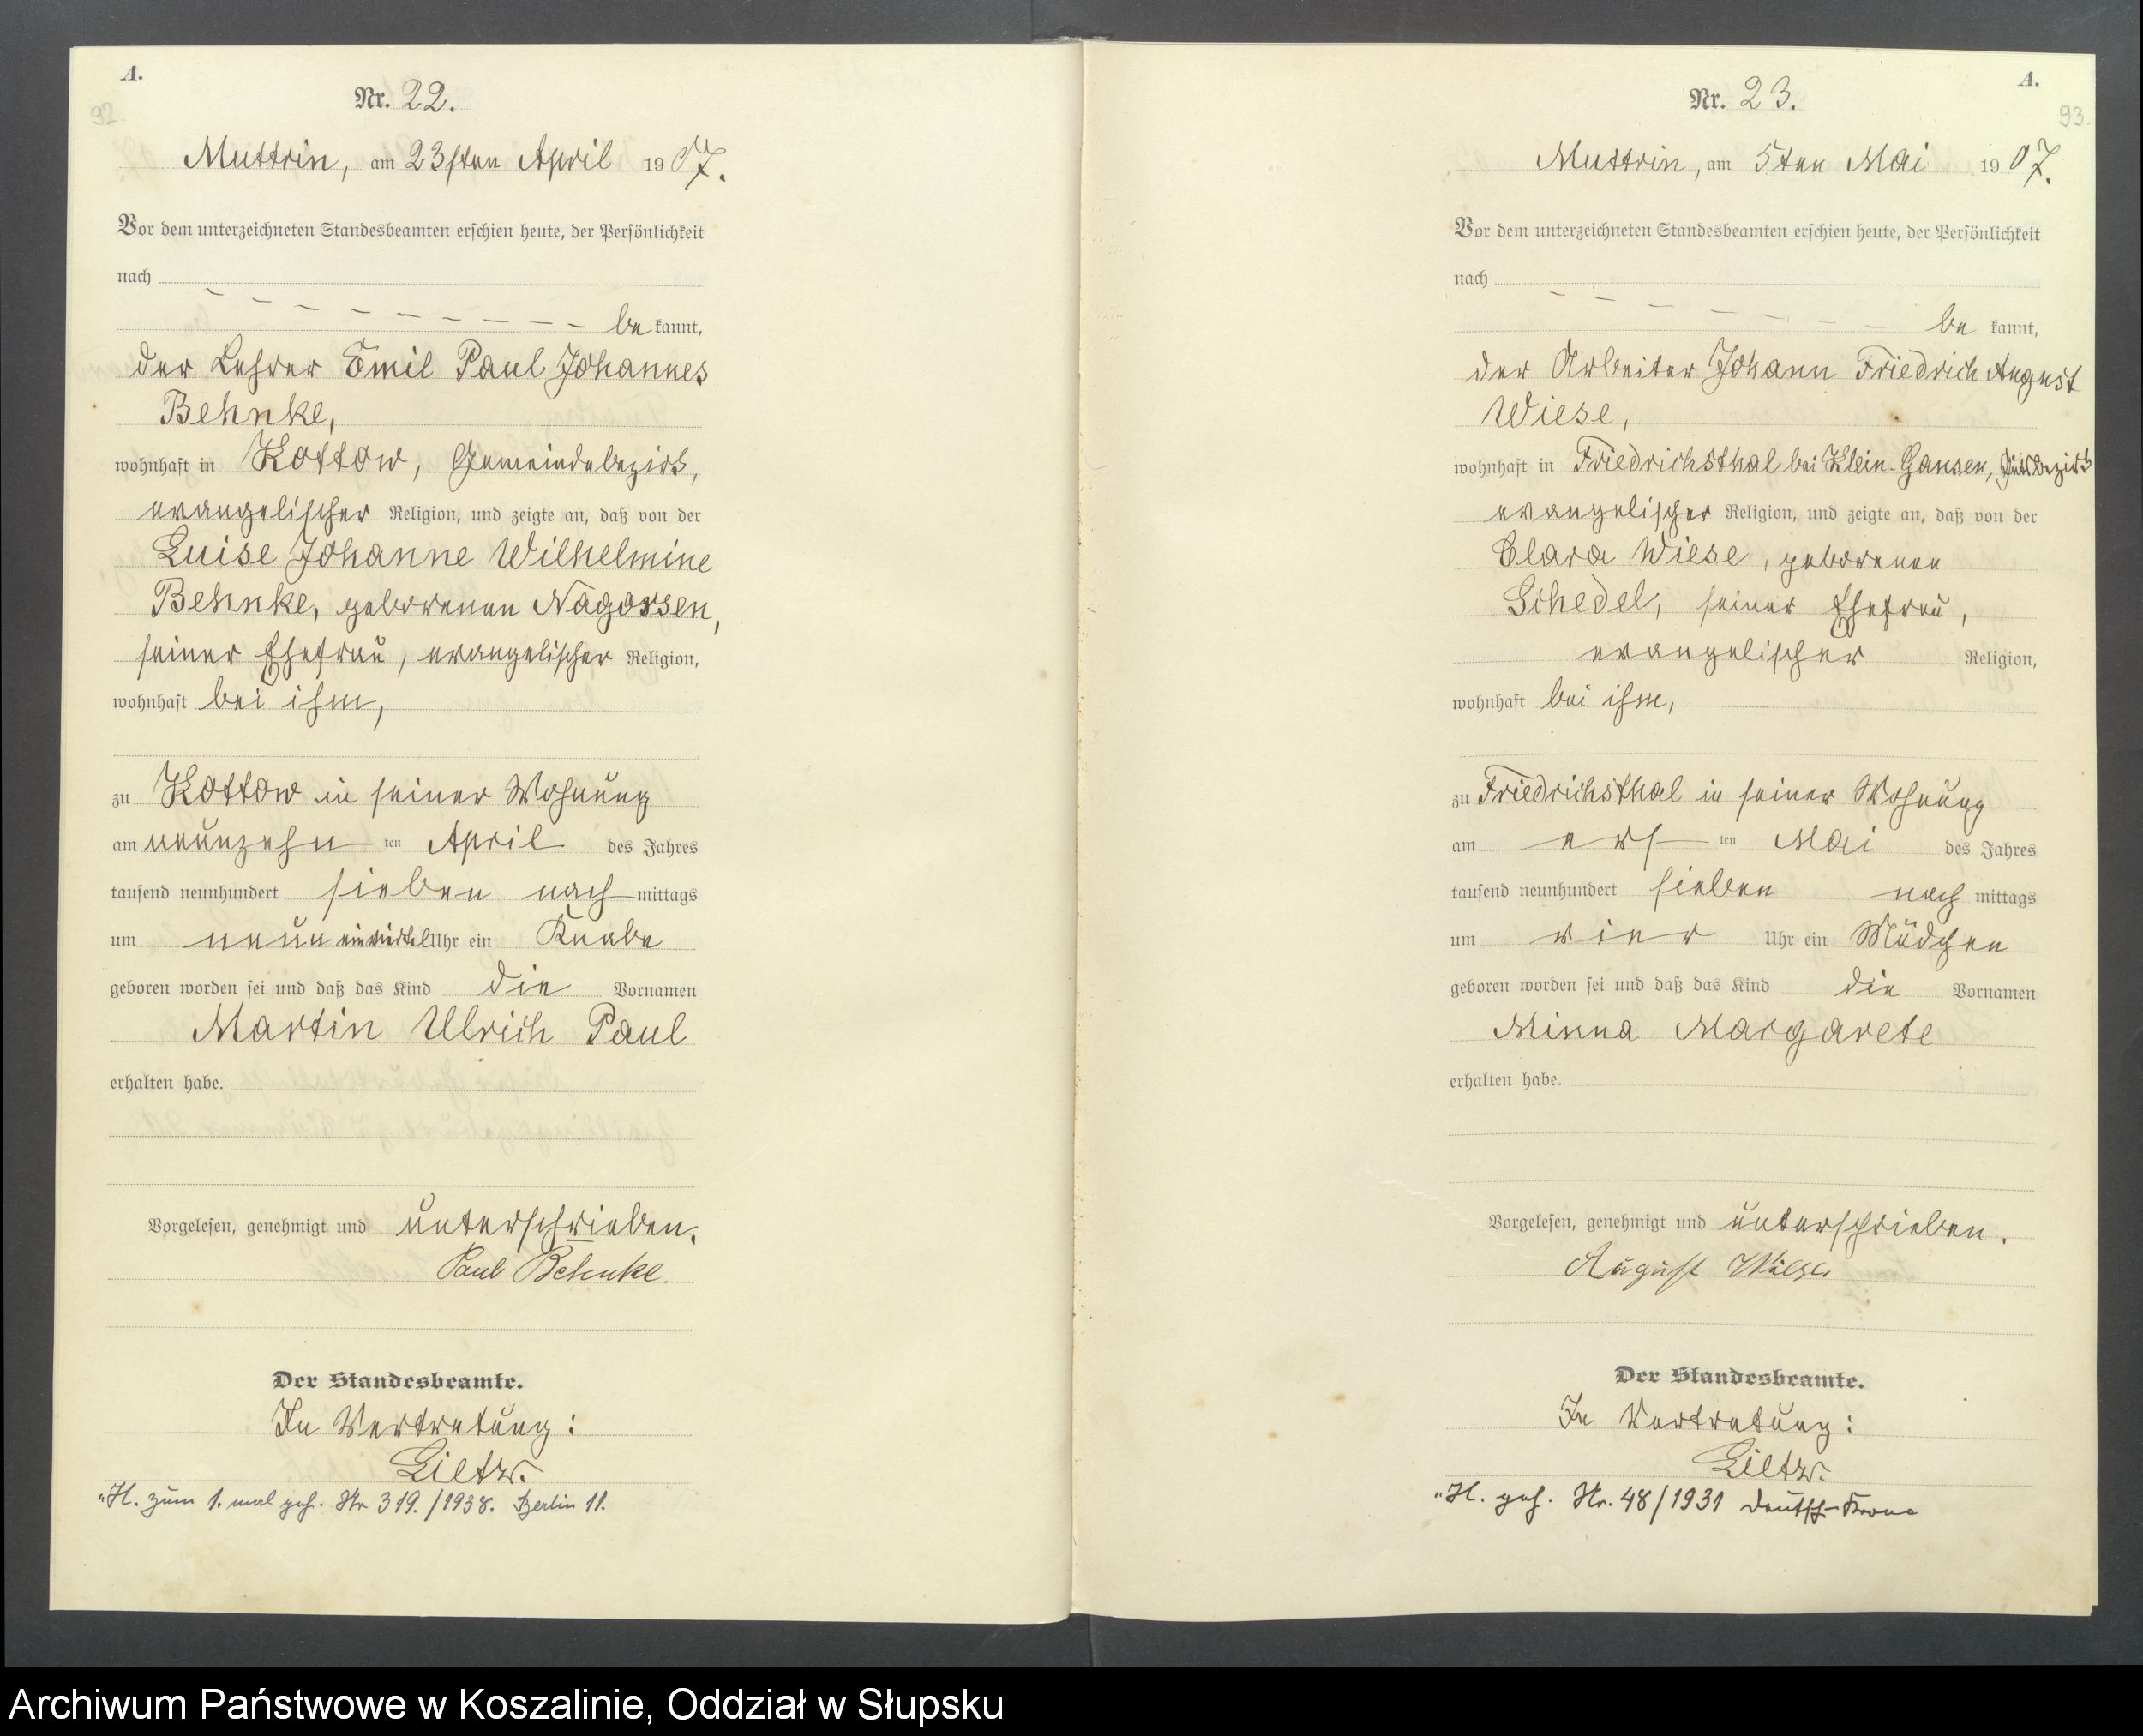 A.
92.
Nr. 22.
Muttrin, am 23sten April 1907.
Vor dem unterzeichneten Standesbeamten erschien heute, der Persönlichkeit
nach
be kannt,
der Lehrer Emil Paul Johannes
Behnke,
wohnhaft in Kottow, Gemeindebezirk,
evangelischer Religion, und zeigte an, daß von der
Luise Johanne Wilhelmine
Behnke, geborenen Nagorsen,
seiner Ehefrau, evangelischer Religion,
wohnhaft bei ihm,
zu Kottow in seiner Wohnung
am neunzehn ten April des Jahres
tausend neunhundert sieben nach mittags
um neun einviertel Uhr ein Knabe
geboren worden sei und daß das Kind die Vornamen
Martin Ulrich Paul
erhalten habe.
Vorgelesen, genehmigt und unterschrieben.
Paul Behnke.
Der Standesbeamte.
In Vertretung:
Lietz.
"H. zum 1. mal geh. Nr 319./1938. Berlin 11.
A.
93.
Nr. 23.
Muttrin, am 5ten Mai 1907.
Vor dem unterzeichneten Standesbeamten erschien heute, der Persönlichkeit
nach
be kannt,
der Arbeiter Johann Friedrich August
Wiese,
wohnhaft in Friedrichsthal bei Klein-Gansen, Gutsbezirk
evangelischer Religion, und zeigte an, daß von der
Clara Wiese, geborenen
Schedel, seiner Ehefrau,
evangelischer Religion,
wohnhaft bei ihm,
zu Friedrichsthal in seiner Wohnung
am ers ten Mai des Jahres
tausend neunhundert sieben nach mittags
um vier Uhr ein Mädchen
geboren worden sei und daß das Kind die Vornamen
Minna Margarete
erhalten habe.
Vorgelesen, genehmigt und unterschrieben.
August Wiese
Der Standesbeamte.
In Vertretung:
Lietz.
"H. geh. Nr. 48/1931 Deutsch-Krone
Archiwum Państwowe w Koszalinie, Oddział w Słupsku